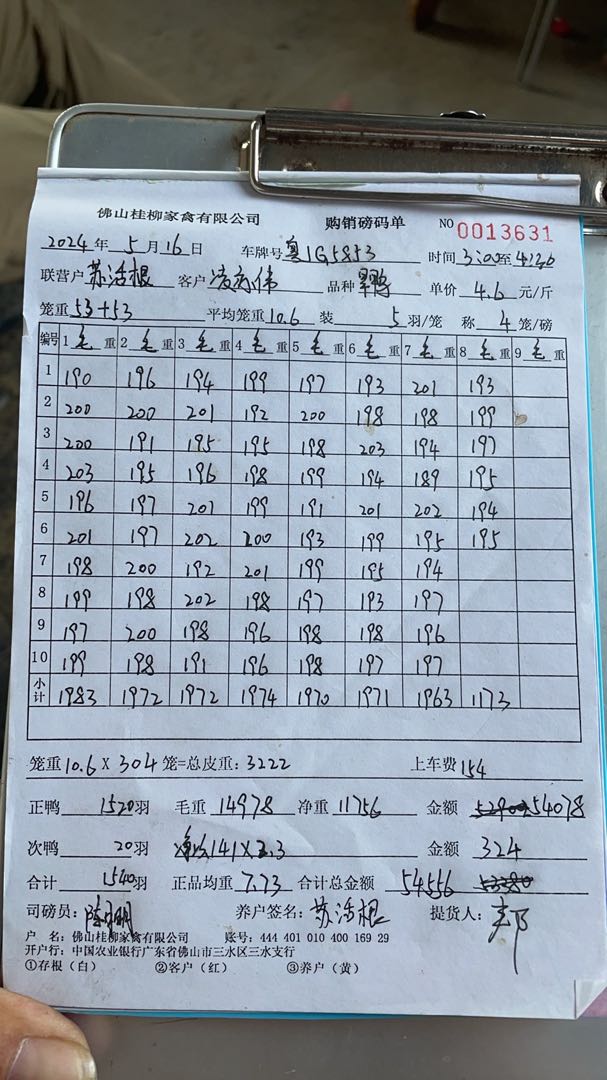 佛山桂柳家禽有限公司 购销磅码单 NO 0013631
2024年5月16日 车牌号 粤1G5853 时间 3:00至4:20
联营户 苏活根 客户 凌 伟 品种 鸭 单价 4.6 元/斤
笼重 53+53 平均笼重 10.6 装 5 羽/笼 称 4 笼/磅
编号 1 毛 重 2 毛 重 3 毛 重 4 毛 重 5 毛 重 6 毛 重 7 毛 重 8 毛 重 9 重
1 190 196 194 199 197 193 201 193
2 200 200 201 192 200 198 198 199
3 200 191 195 195 198 203 194 197
4 203 195 196 198 199 194 189 195
5 196 197 201 199 191 201 202 194
6 201 197 202 200 193 199 195 195
7 198 200 192 201 199 195 194
8 199 198 202 198 197 193 197
9 197 200 198 196 198 198 196
10 199 198 191 196 198 197 197
小计 1983 1972 1972 1974 1970 1971 1963 1173
笼重 10.6 X 304 笼=总皮重: 3222 上车费 154
正鸭 1520 羽 毛重 14978 净重 11756 金额 54078
次鸭 20 羽 141×2.3 金额 324
合计 1540 羽 正品均重 7.73 合计总金额 54556
司磅员: 养户签名: 苏活根 提货人: 郭
户 名: 佛山桂柳家禽有限公司 账号: 444 401 010 400 169 29
开户行: 中国农业银行广东省佛山市三水区三水支行
①存根（白） ②客户（红） ③养户（黄）